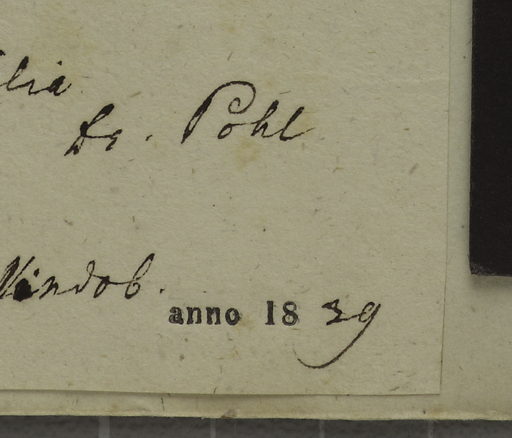 ilia
Dr. Pohl
Vindob.
anno 1839